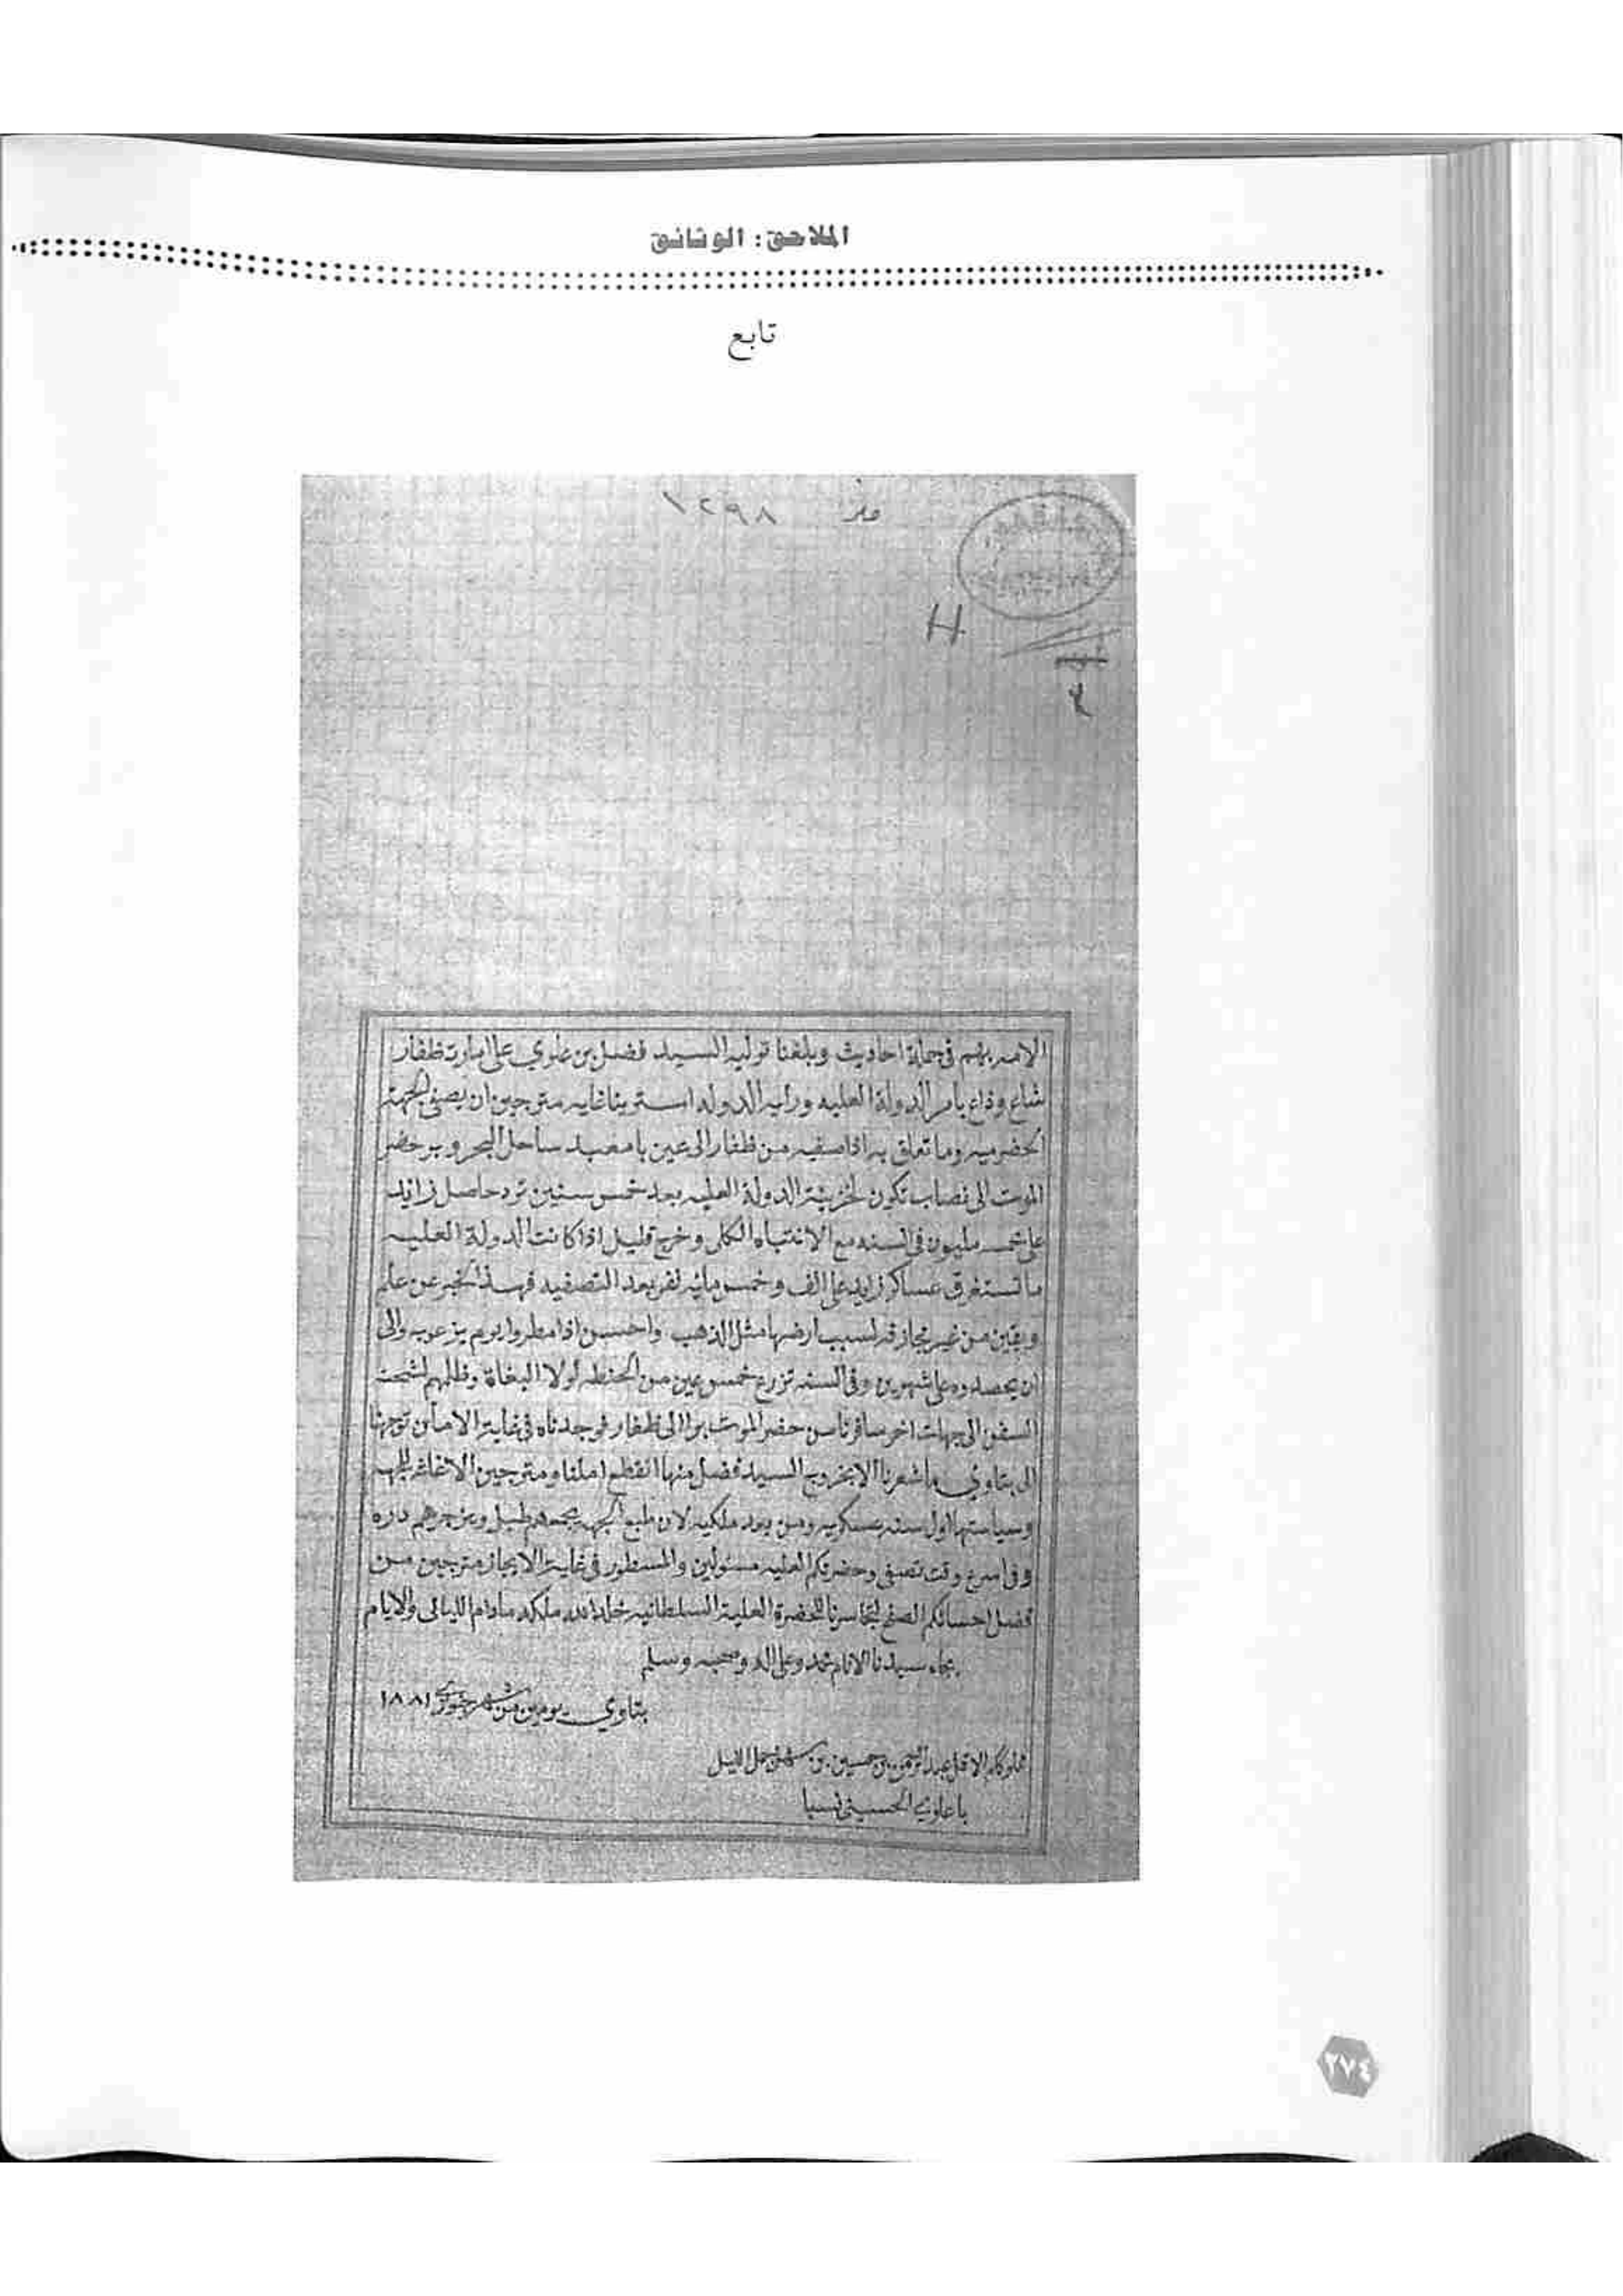 الملاحق: الوثائق
تابع
١٢٩٨
H
الامر بهم في جملة احاديث وبلغنا توليه السيد فضل بن علوي على امارت ظفار
شاع وذاع بامر الدولة العليه ورايه الدوله استرينا غايه مترجين ان يصفي الجهة
الحضرميه وما تعلق به اذا صفيه من ظفار الى عين بامعبد ساحل البحر وبر حضر
الموت الى نصاب تكون لخزينة الدولة العليه بعد خمس سنين ترد حاصل زايد
على مليون في السنه مع الانتباه الكلي وخرج قليل اذا كانت الدولة العليه
ما تستغرق عساكر زايد على الف وخمس مائه نفر بعد التصفيه فهذا الخبر عن علم
ويقين من غير مجازفه لسبب ارضها مثل الذهب واحسن اذا مطروا يوم يزعوبه والى
ان يحصدوه على شهرين وفي السنه تزرع من الحنطه لولا البغاة وظلهم لشحنت
السفن الى جهات اخر سافرنا من حضر الموت برا الى ظفار فوجدناه في غاية الامان توجهنا
الى بتاوي ما شعرنا الا بخروج السيد فضل منها انقطع املنا ومترجين الاغاثه للجهه
وسياستها اول سنه عسكريه ومن بعد ملكيه لان طبع الجهه يجمعهم طبل ويزجرهم داره
وفي اسرع وقت تصفي وحضرتكم العليه مسئولين والمسطور في غاية الايجاز مترجين من
فضل احسانكم الصفح لتجاسرنا للحضرة العلية السلطانيه خلد الله ملكه ما دام الليالي والايام
بجاه سيدنا الانام محمد وعلى اله وصحبه وسلم
بتاوي يومين من شهر جنوري ١٨٨١
مملوككم الاقل عبد الرحمن بن حسين بن سهل جمل الليل
باعلوي الحسيني نسبا
٢٧٤